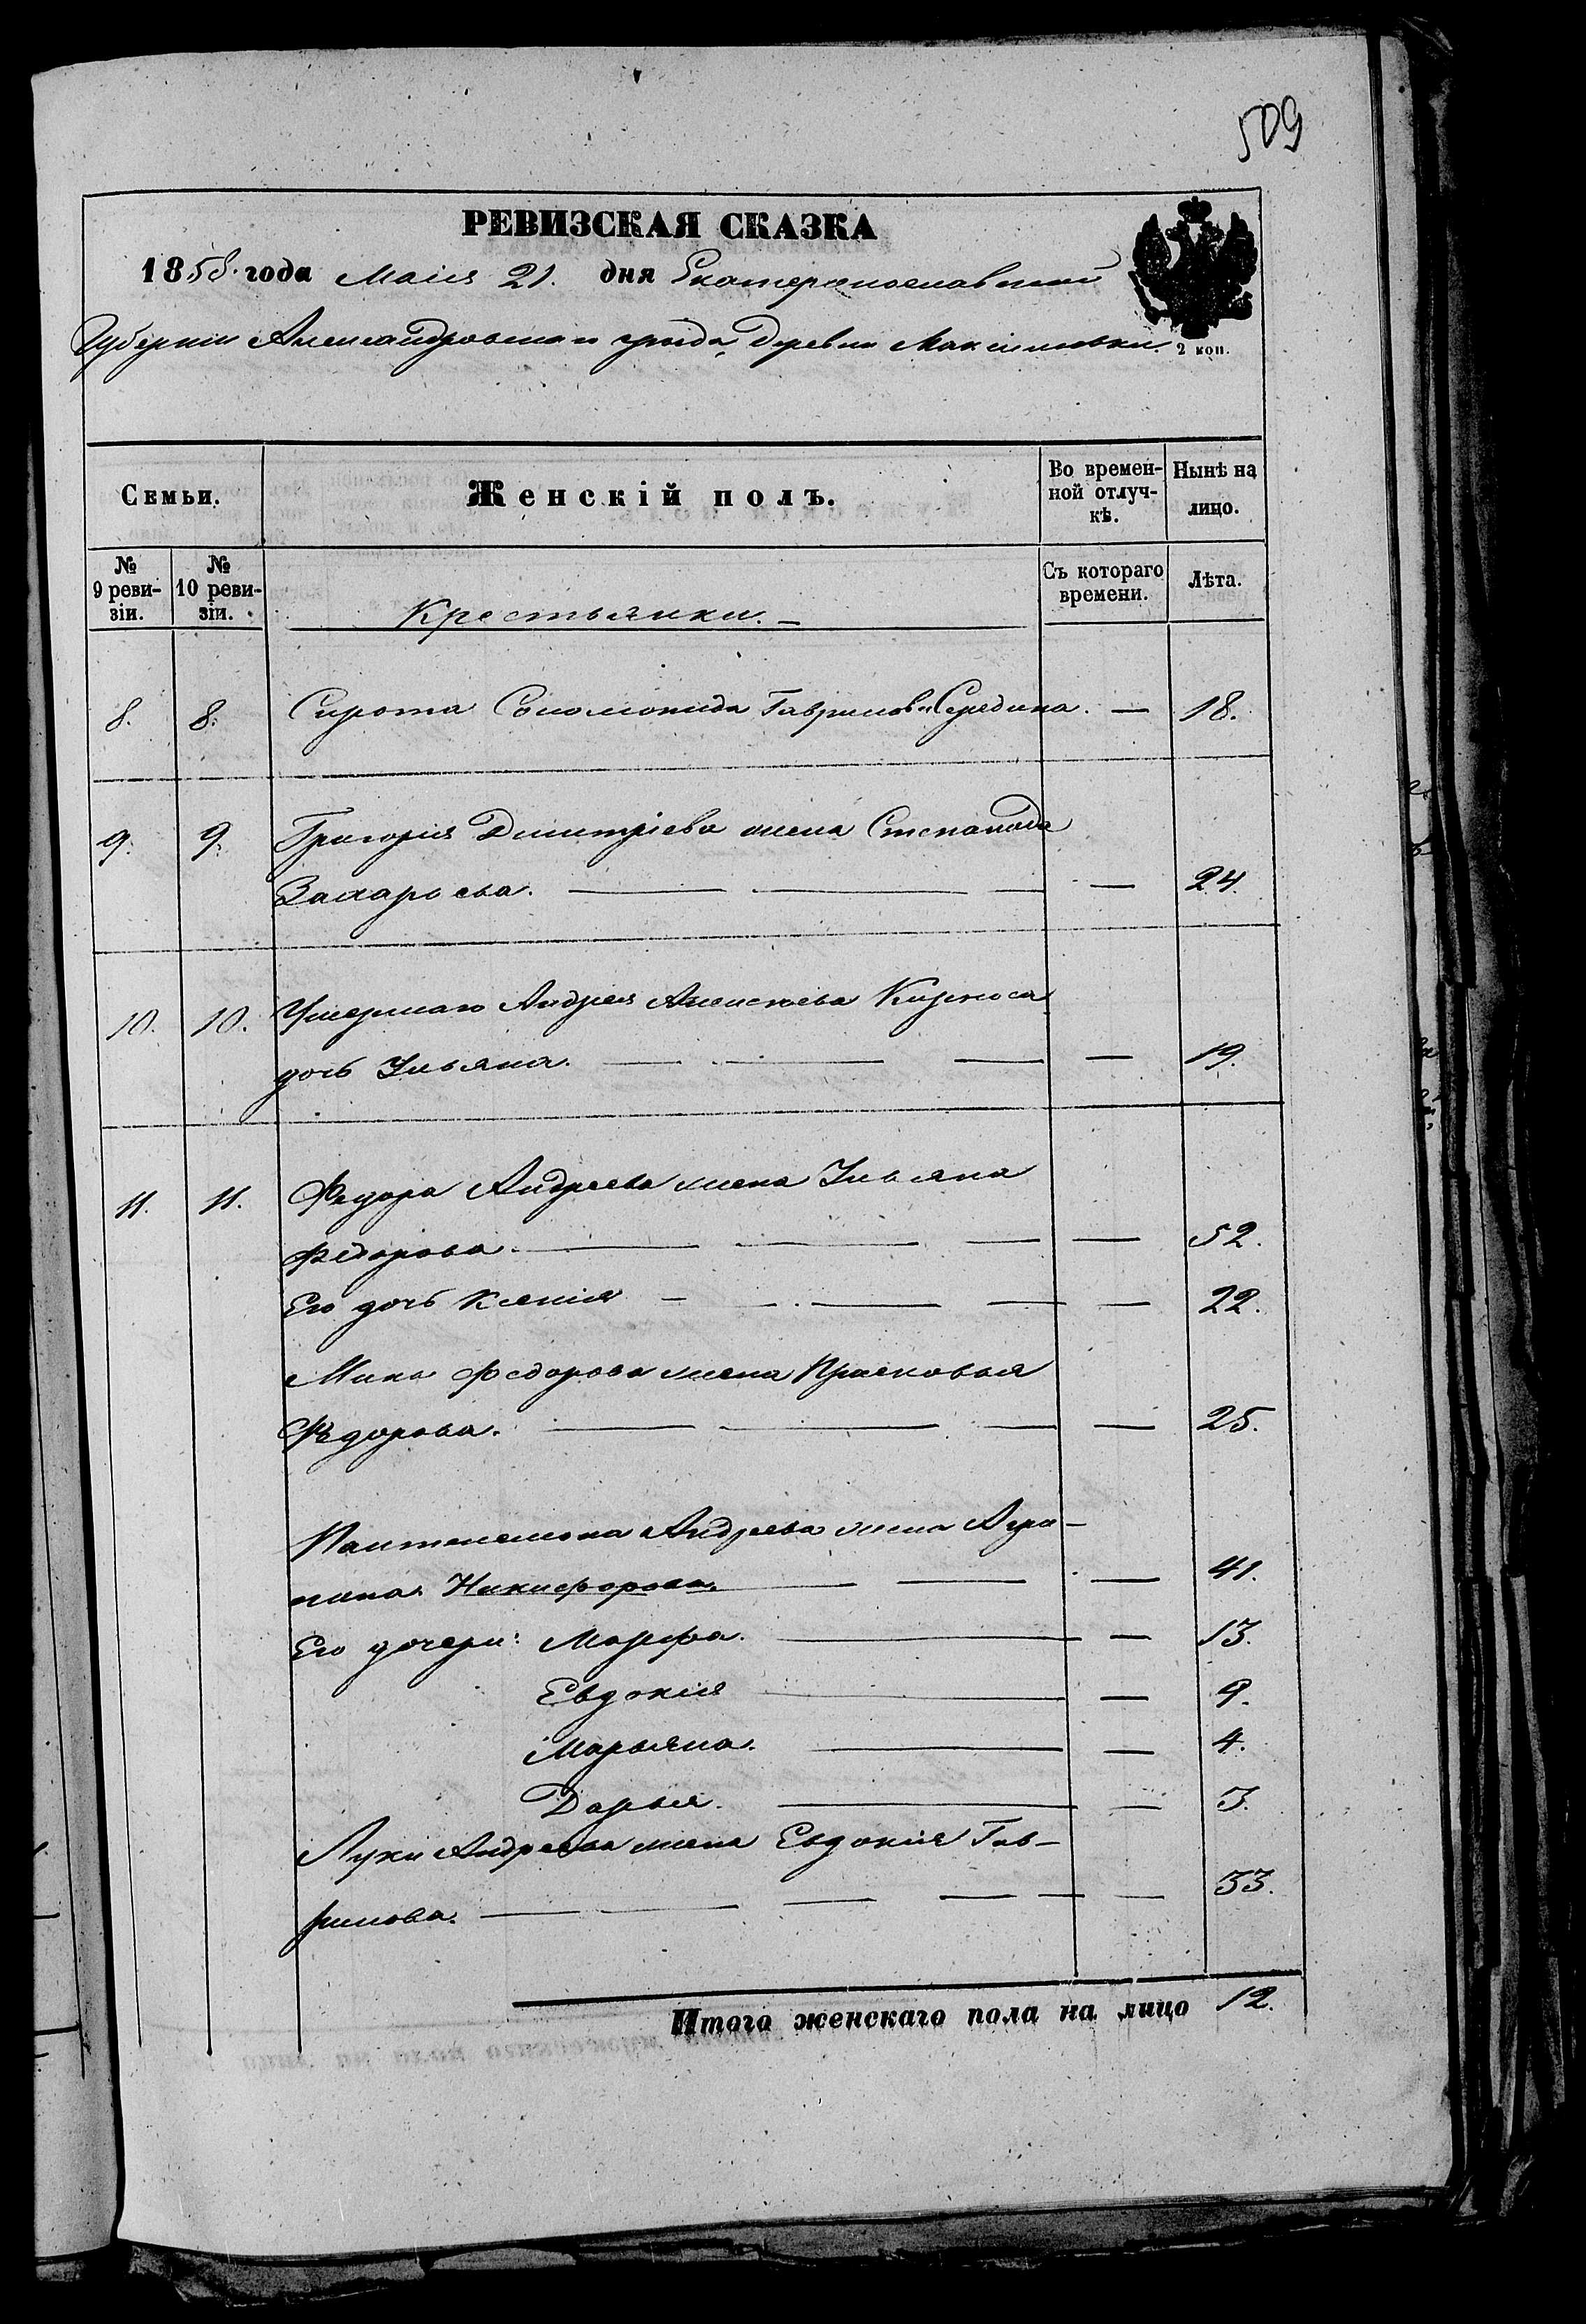 509
РЕВИЗСКАЯ СКАЗКА
1858. года Маія 21. дня Екатеринославской
Губерніи Александровскаго уѣзда, Деревни Максимовки.
2 коп.
Семьи. Женскій полъ. Во времен- Нынѣ на
ной отлуч- лицо.
кѣ.
№ № Съ котораго Лѣта.
9 реви- 10 реви- времени.
зіи. зіи. Крестьянки. —
8. 8. Сирота Соломонида Гаврилова Середина. — 18.
9. 9. Григорія Дмитріева жена Степанида
Захарьева. — 24.
10. 10. Умершаго Андрея Алексѣева Кирноса
дочь Ульяна. — 19.
11. 11. Федора Андреева жена Ульяна
Федорова. — 52.
Его дочь Ксенія — 22.
Мины Федорова жена Прасковья
Федорова. — 25.
Пантелемона Андреева жена Агри-
пина Никифорова. — 41.
Его дочери: Марфа. — 13.
Евдокія — 9.
Марьяна. — 4.
Дарья. — 3.
Луки Андреева жена Евдокія Гав-
рилова. — 33.
Итого женскаго пола на лицо 12.